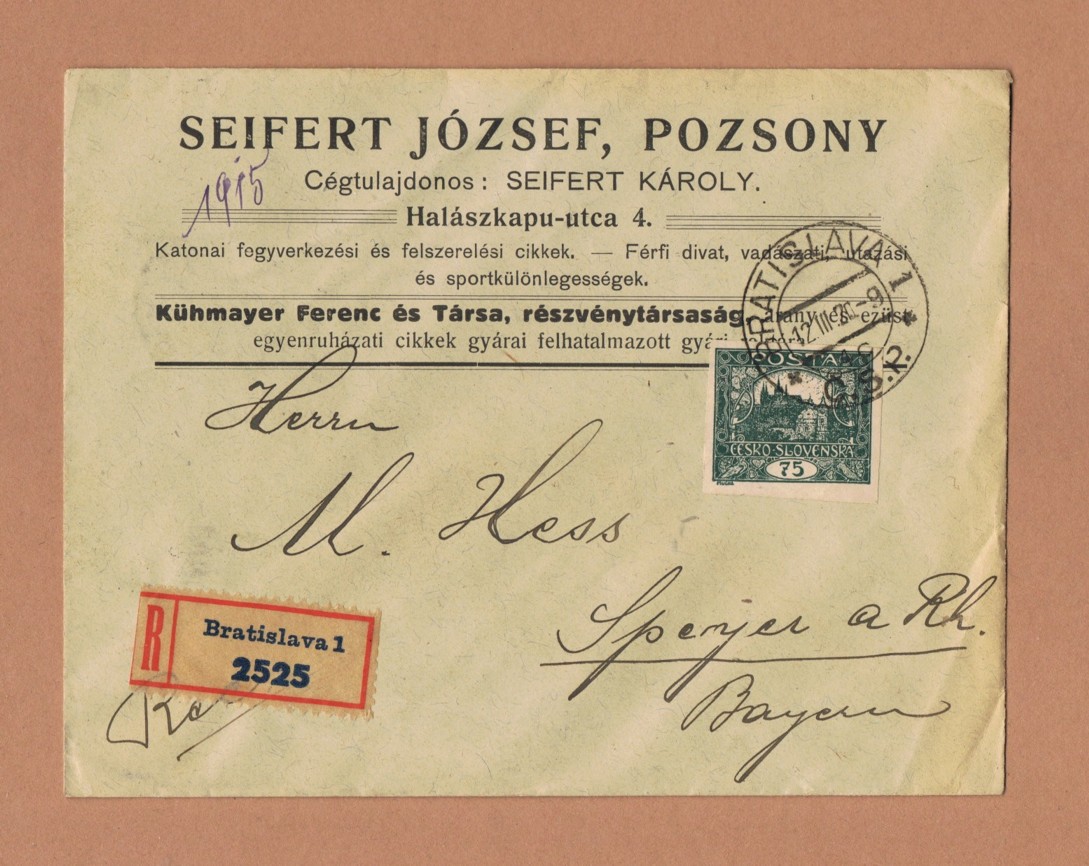 SEIFERT JÓZSEF, POZSONY
1915
Cégtulajdonos: SEIFERT KÁROLY.
Halászkapu-utca 4.
Katonai fegyverkezési és felszerelési cikkek. — Férfi divat, vadászati, utazási
és sportkülönlegességek.
Kühmayer Ferenc és Társa, részvénytársaság, arany és ezüst
egyenruházati cikkek gyárai felhatalmazott gyári
BRATISLAVA 1
12 III 20-9
Č.S.P.
POSTA
ČESKO-SLOVENSKÁ
75
MUCHA
Herrn
M. Hess
Speyer a Rh.
Bayern
R
Bratislava 1
2525